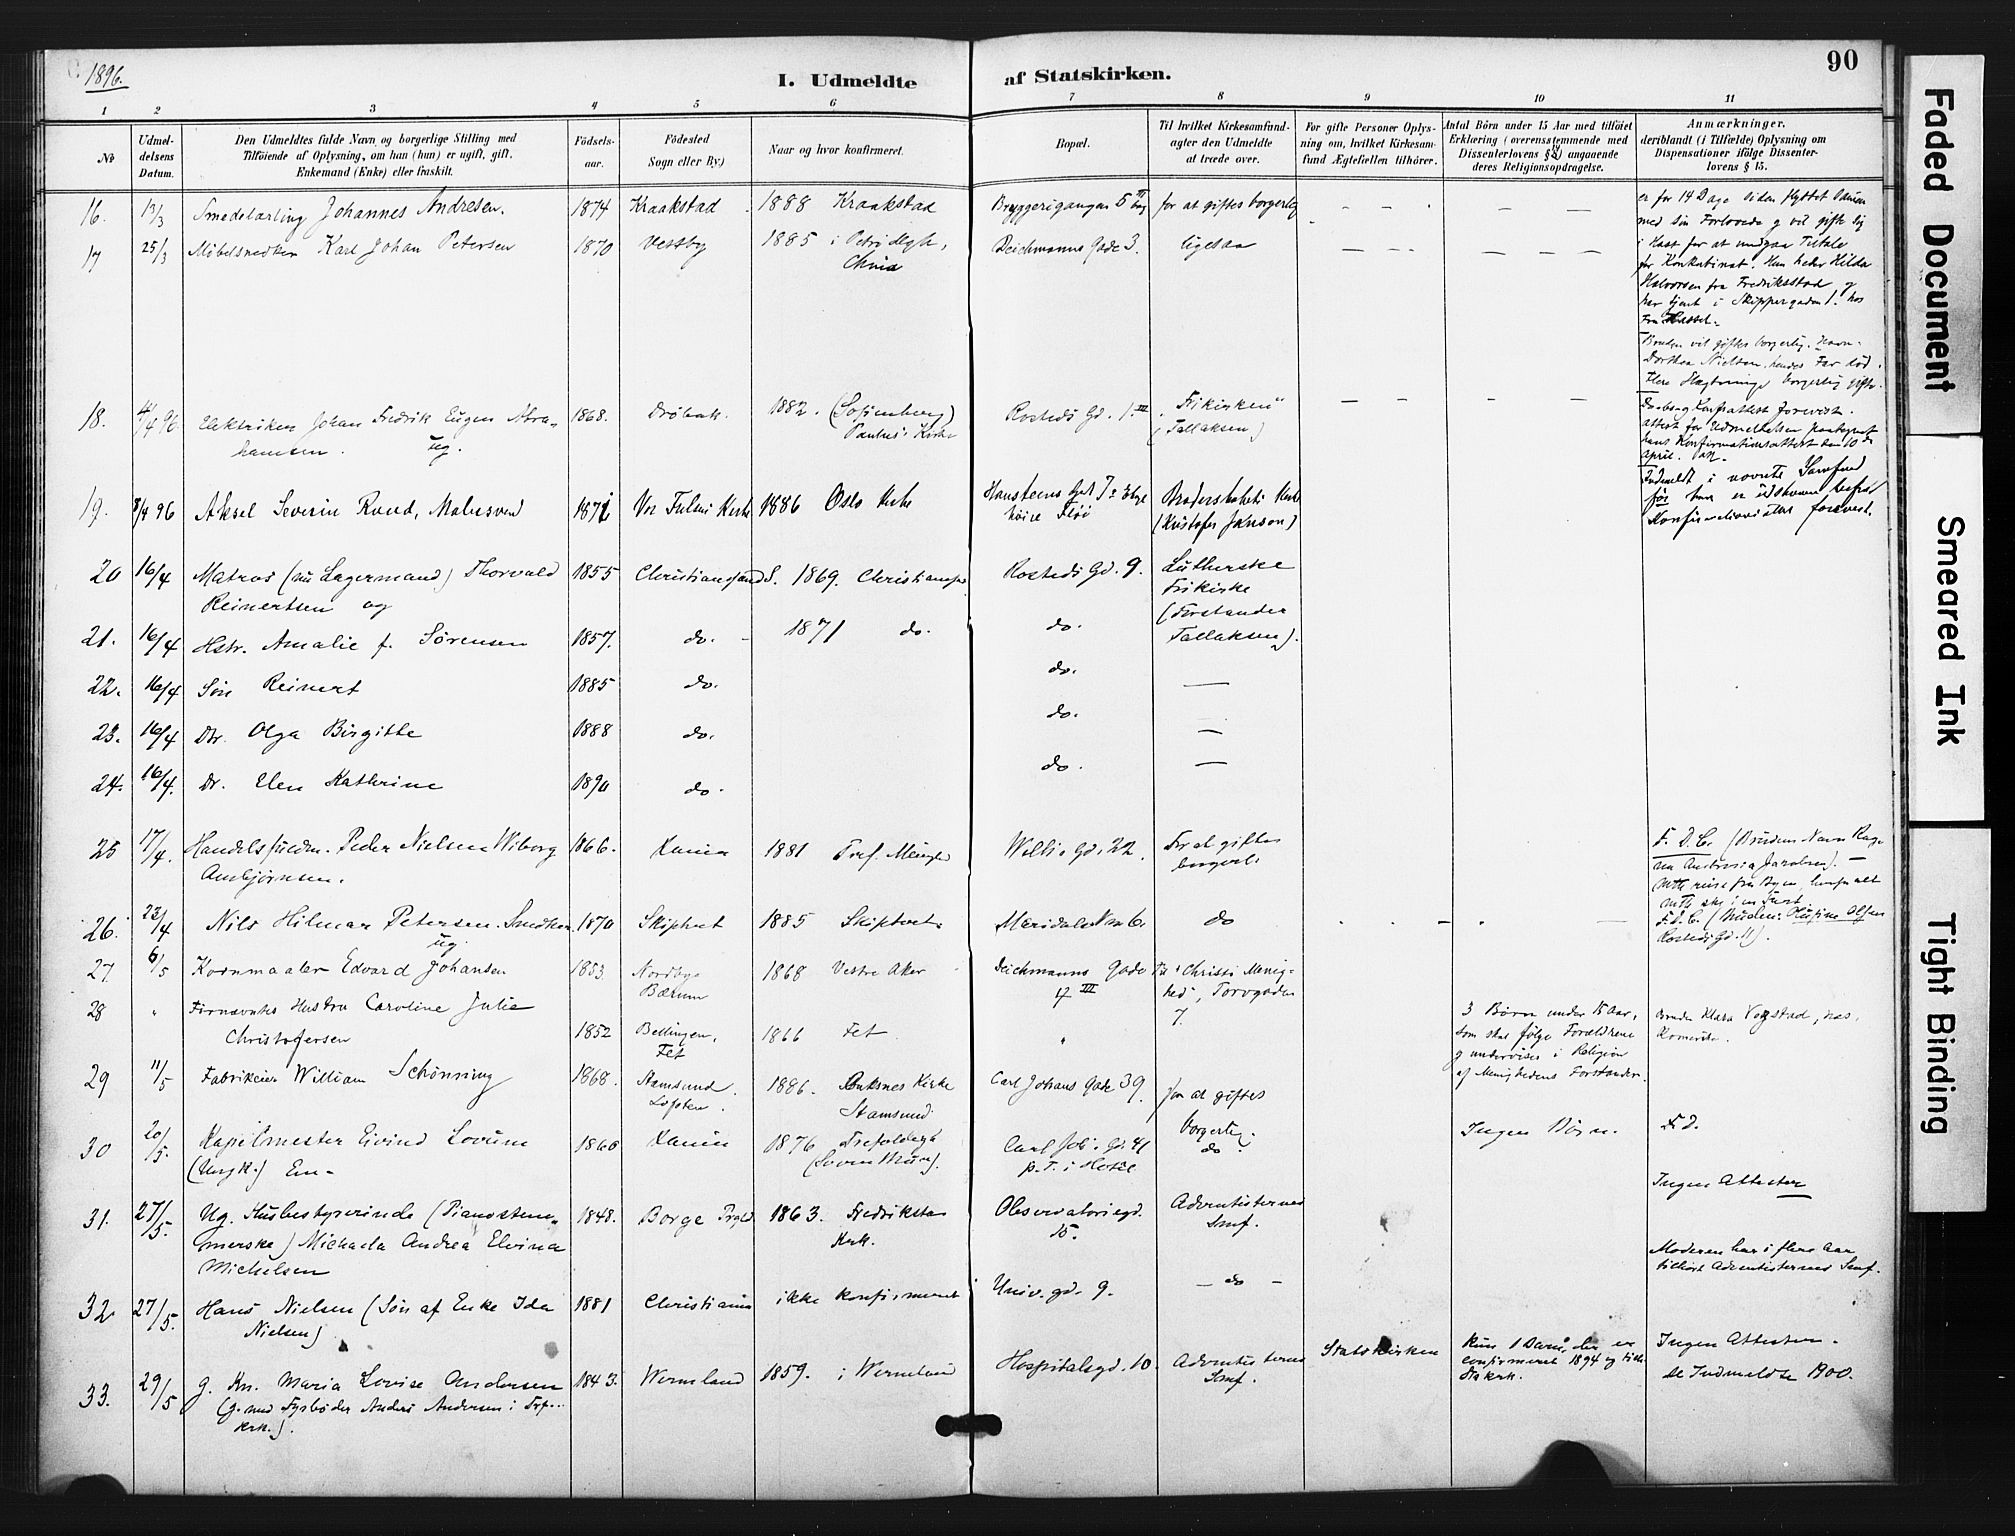 1896.
I. Udmeldte
af Statskirken.
90
1 2 3 4 5 6 7 8 9 10 11
No
Udmel-
delsens
Datum.
Den Udmeldtes fulde Navn og borgerlige Stilling med
Tilføiende af Oplysning, om han (hun) er ugift, gift,
Enkemand (Enke) eller fraskilt.
Fødsels-
aar.
Fødested
Sogn eller By.)
Naar og hvor konfirmeret.
Bopæl.
Til hvilket Kirkesamfund-
agter den Udmeldte
at træde over.
For gifte Personer Oplys-
ning om, hvilket Kirkesam-
fund Ægtefællen tilhører.
Antal Börn under 15 Aar med tilföiet
Erklæring (overensstemmende med
Dissenterlovens § ) angaaende
deres Religionsopdragelse.
Anmærkninger,
deriblandt (i Tilfælde) Oplysning om
Dispensationer ifölge Dissenter-
lovens § 15.
16. 13/3 Smedelærling Johannes Andresen. 1874 Kraakstad 1888 Kraakstad Bryggerigangen 5 for at giftes borgerlig
er for 14 Dage siden flyttet sammen
med sin Forlovede og vil gifte sig
i Hast for at undgaa Tiltale
for Konkubinat. Hun heder Hilda
Halvorsen fra Fredriksstad og
har tjent i Skippergaden 1. hos
Fru Hassel.
17 25/3 Møbelsnedker Karl Johan Petersen 1870 Vestby 1885 i Petri Mgh, Deichmanns Gade 3. ligesaa
Chria
Bruden vil giftes borgerlig. Navn
Dorthea Nielsen, hendes Far død.
Flere Slægtninge borgerlig gifte.
18. 4/4 96 Elektriker Johan Fredrik Eugen Abra- 1868. Drøbak. 1882. (Sofienberg) Rosteds Gd. 1. III "Frikirken"
hamsen. ug. Paulus' Kirke (Tallaksen)
Daabs og Konfattest forevist.
Attest for Udmeldelsen paategnet
hans Konfirmationsattest den 10de
April.
19. 8/4 96 Aksel Severin Ruud, Malersvend 1871 Vor Frelsers Kirke 1886 Oslo Kirke Hansteens Gd 7 2 Etge Broderskabets Kirke
høire Fløi (Kristofer Janson)
Indmeldt i nævnte Samfund
før han er udskreven herfra
Konfirmationsattest forevist.
20 16/4 Matros (nu Lagermand) Thorvald 1855 Christianssand S. 1869. Christianss. Rosteds Gd. 9. Lutherske
Reinertsen og Frikirke
(Forstander
21. 16/4 Hstr. Amalie f. Sørensen 1857. do. 1871 do. do. Tallaksen).
22. 16/4 Søn Reinert 1885 do. do. —
23. 16/4 Dtr. Olga Birgitte 1888 do. do. —
24. 16/4. Dr. Elen Kathrine 1890 do. do. —
25 17/4. Handelsfuldm. Peder Nielsen Wiborg 1866. Xania 1881 Tref. Mengh. Willis Gd. 22. For at giftes
Ambjørnsen. borgerl.
F. D. C. (Brudens Navn Rag-
na Andresia Jacobsen). —
26. 23/4 Nils Hilmar Petersen. Snedker 1870 Skiptvet 1885 Skiptvet Maridalsvn 6. do
ug.
F. D. C. (Bruden: Olsen
Rosteds Gd. 11).
27 6/5 Kornmaaler Edvard Johansen 1853 Nordbye 1868 Vestre Aker Deichmanns Gade Til "Christi Menig-
Bærum 4 III hed", Torvgaden
7.
28 " Førnævntes Hustru Caroline Julie
Christofersen 1852 Bellingen, 1866 Fet "
Fet
3 Børn under 15 Aar,
som skal følge Forældrene
og undervises i Religion
af Menighedens Forstander.
29 11/5 Fabrikeier William Schönning 1868. Stamsund 1886. Buksnes Kirke Carl Johans Gade 39. for at giftes
Lofoten. Stamsund borgerlig.
Bruden Klara Vegstad, nas.
Romerike.
30 20/5. Kapelmester Eivind Lovum 1860 Xania 1876 Trefoldighh Carl Joh. Gd. 41 do
(Ungk.) Em- p. T. i Hotel
Ingen Børn. F. d.
31. 27/5. Ug. Husbestyrerinde (Pianostem- 1848. Borge Prgld 1863. Fredrikstad Observatoriegd. Adventisternes
merske) Michaela Andrea Elvina Kirk. 15. Smf.
Michelsen
Ingen Attester
32 27/5. Hans Nielsen (Søn af Enke Ida 1881 Christiania ikke konfirmeret Univ. gd. 9. — do —
Nielsen)
Moderen har i flere Aar
tilhørt Adventisternes Smf.
33. 29/5 g. Kn. Maria Lovise Andersen 1843. Wermland 1859. i Wermland Hospitalsgd. 10. Adventisternes Statskirken
(g. med Fyrbøder Anders Andersen i Tref- Smf.
kirk.).
Kun 1 Barn, der er
confirmeret 1894 og tilh.
Stkirk.
Ingen Attester.
Se Indmeldte 1900.
Faded Document
Smeared Ink
Tight Binding